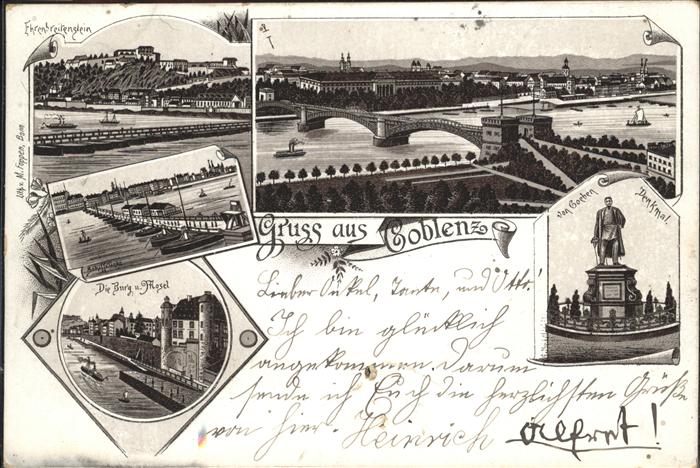 Ehrenbreitenstein
Gruss aus Coblenz
Schiffbrücke
Die Burg u. Mosel
von Goeben
Denkmal.
Lith. v. M. Foppen, Bonn
Lieber Onkel, Tante, und Otto!
Ich bin glücklich
angekommen. Darum
sende ich Euch die herzlichsten Grüße
von hier. Heinrich
Alfret!